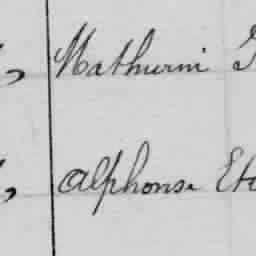 Mathurin
Alphonse